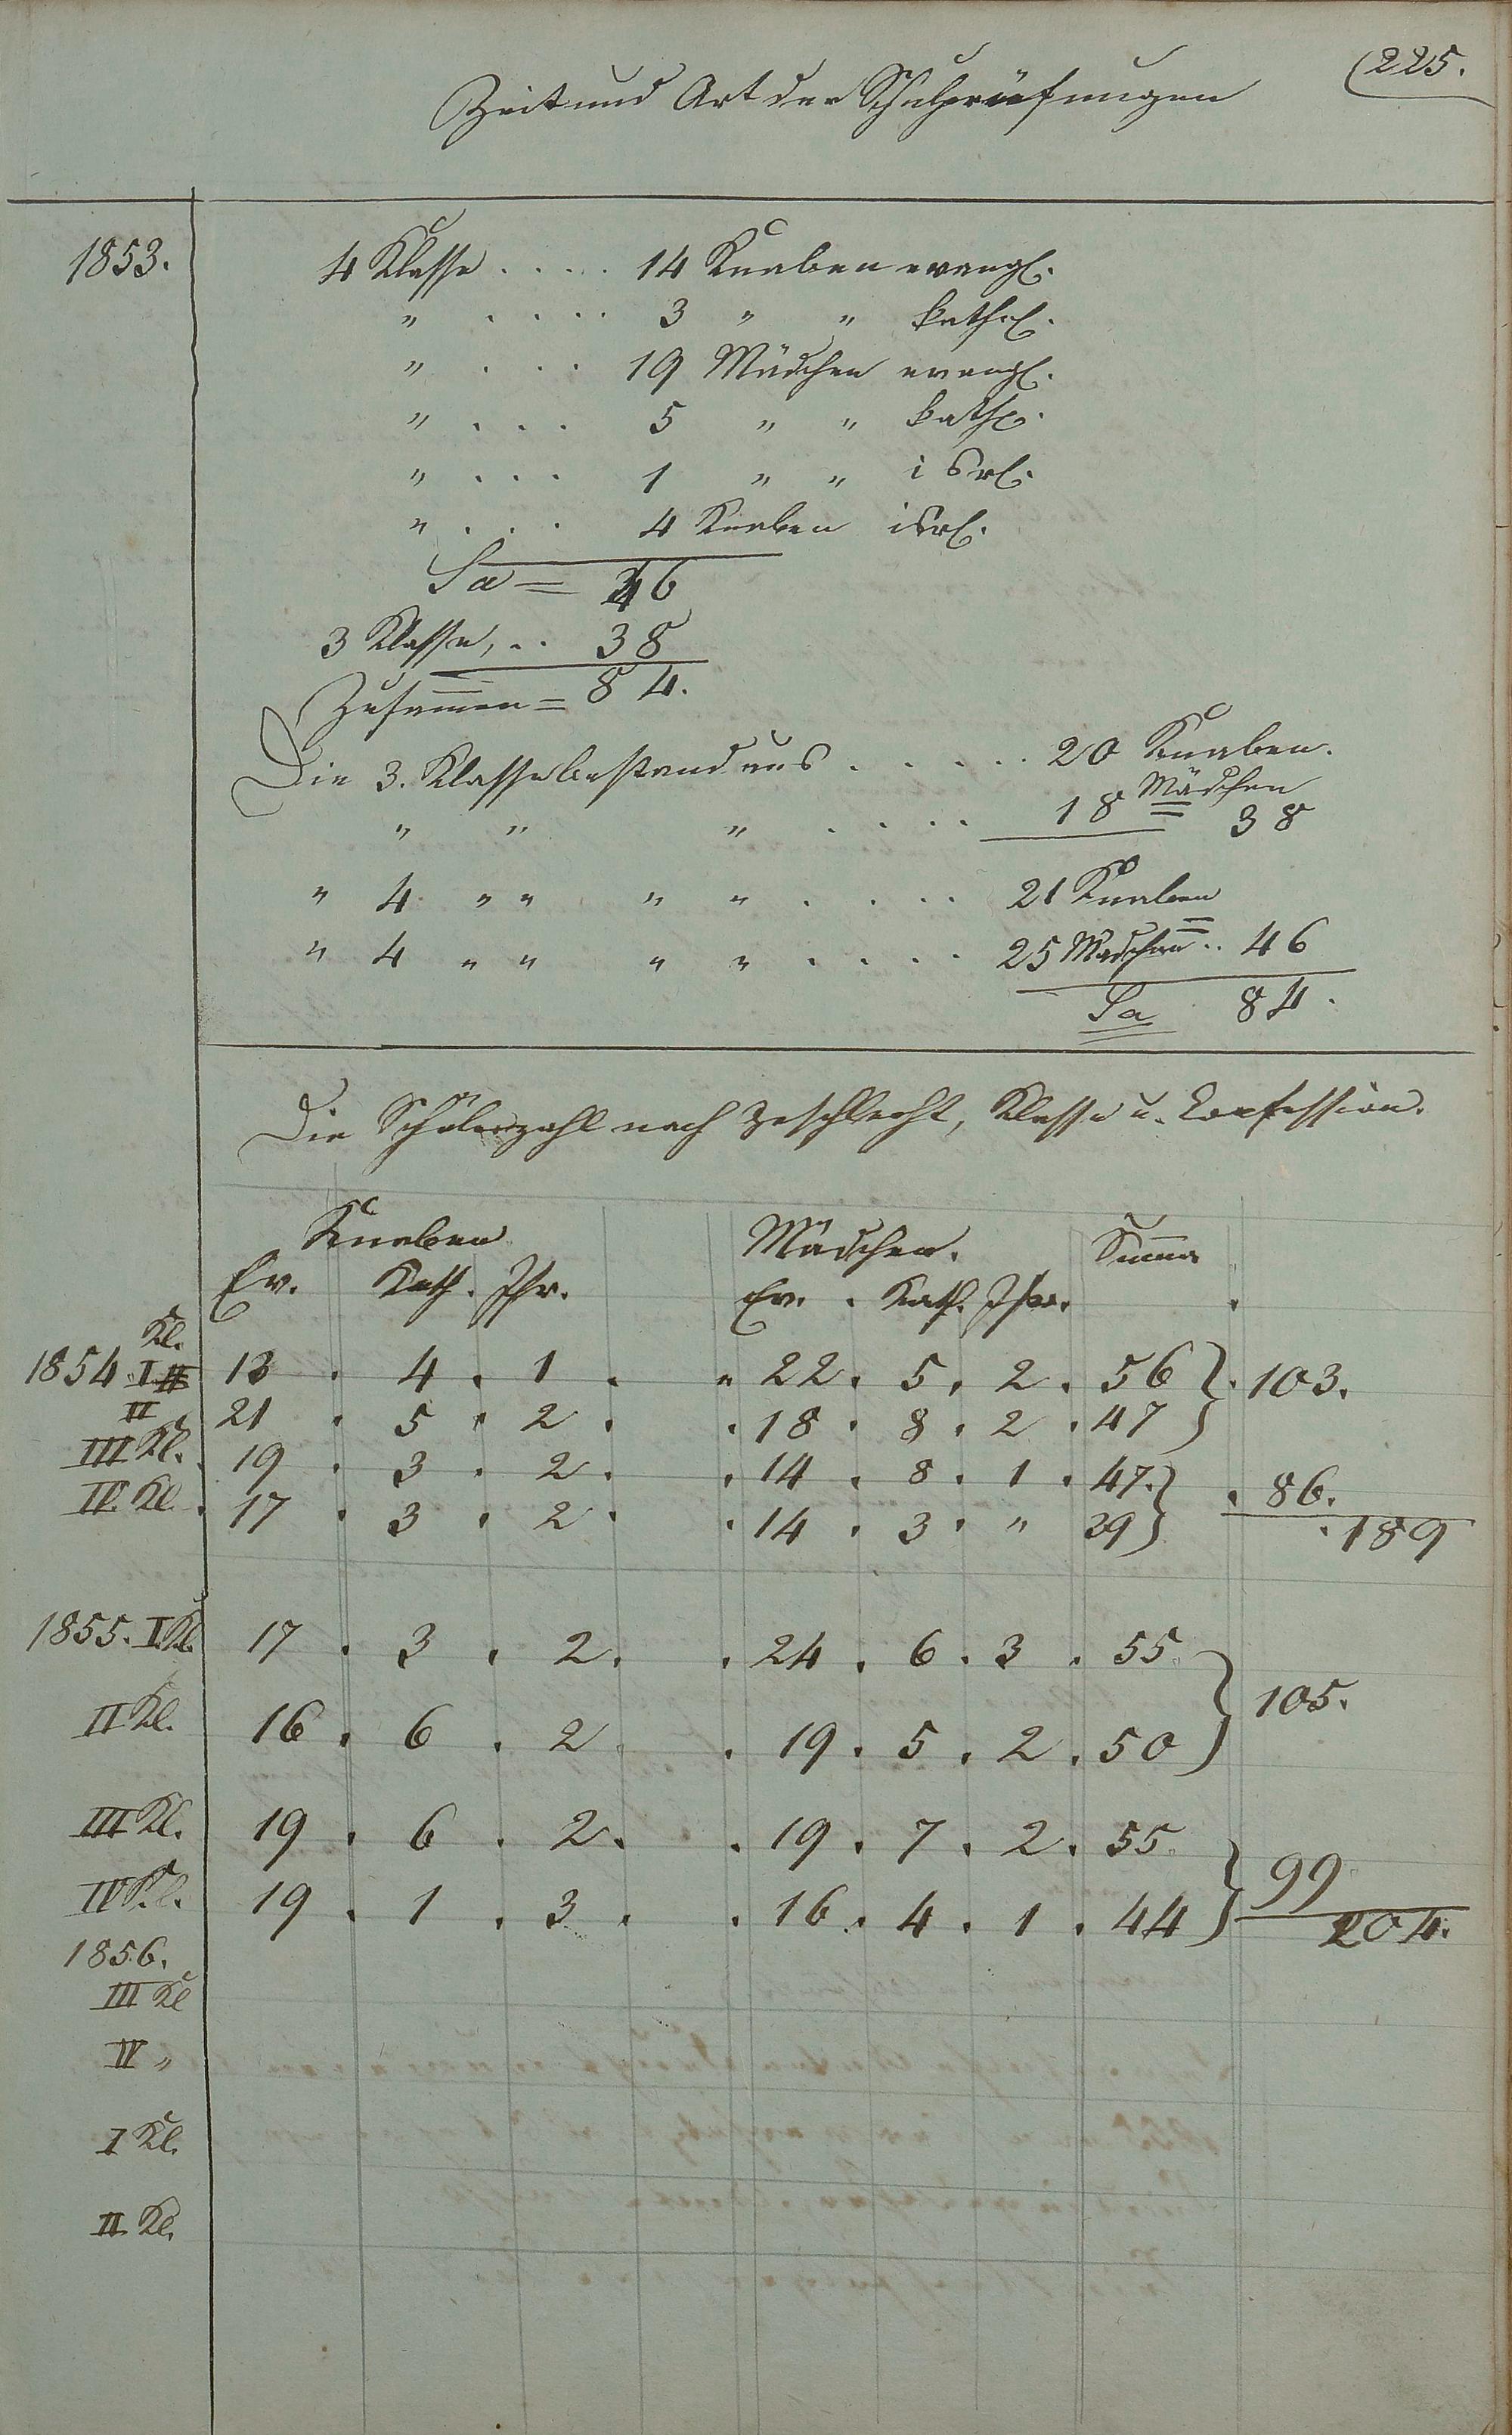 225.
Zeit und Art der Schulprüfungen
1853. 4 Klasse . . . . 14 Knaben evangl.
" . . . . 3 " " kathol.
" . . . 19 Mädchen evangl.
" . . . 5 " " kathl.
" . . . 1 " " isrl.
" . . . 4 Knaben isrl.
Sa = 46
3 Klasse, . . 38
Zusammen = 84.
Die 3. Klasse bestand aus . . . . . 20 Knaben.
" " " . . . . 18 Mädchen = 38
" 4 " " " " . . . . 21 Knaben
" 4 " " " " . . . . 25 Mädchen = . . 46
Sa 84.
Die Schülerzahl nach Geschlecht, Klasse u. Confession.
Knaben Mädchen. Summa
Ev. Kath. Isr. Ev. . Kath. Isr. .
Kl.
1854 I 13 . 4 . 1 . " 22 . 5 . 2 . 56 } . 103.
II 21 . 5 . 2 . . 18 . 8 . 2 . 47
III Kl. 19 . 3 . 2 . . 14 . 8 . 1 . 47. } . 86.
IV. Kl. . 17 . 3 . 2 . . 14 . 3 . " 39 . 189
1855. I. Kl. 17 . 3 . 2 . . 24 . 6 . 3 . 55 } 105.
II Kl. 16 . 6 . 2 . . 19 . 5 . 2 . 50
III Kl. 19 . 6 . 2 . . 19 . 7 . 2 . 55 } 99
IV Kl. 19 . 1 . 3 . . 16 . 4 . 1 . 44 204.
1856.
III Kl
IV "
I Kl.
II. Kl.